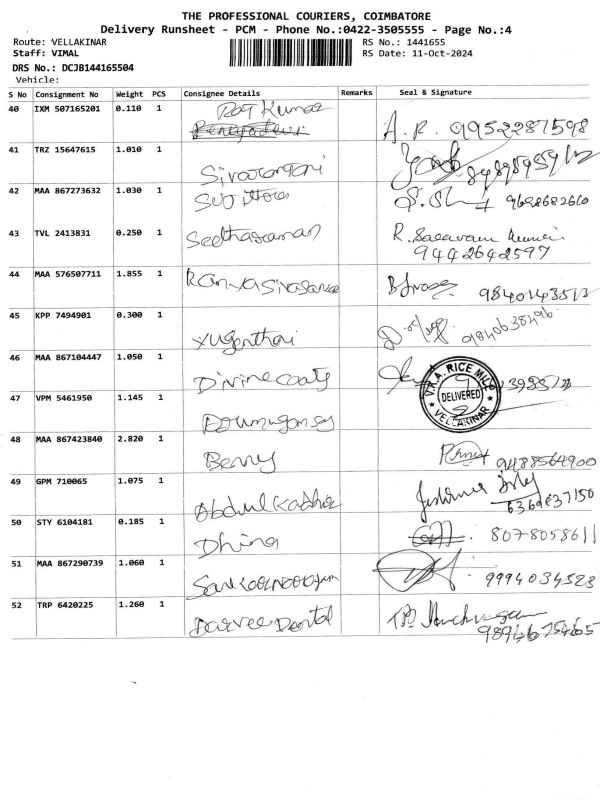 THE PROFESSIONAL COURIERS, COIMBATORE
Delivery Runsheet - PCM - Phone No.:0422-3505555 - Page No.:4
Route: VELLAKINAR RS No.: 1441655
Staff: VIMAL RS Date: 11-Oct-2024
DRS No.: DCJB144165504
Vehicle:
S No Consignment No Weight PCS Consignee Details Remarks Seal & Signature
40 IXM 507165201 0.110 1 Raj Kumar
A. R. 9952287598
41 TRZ 15647615 1.010 1
42 MAA 867273632 1.030 1
9698682660
43 TVL 2413831 0.250 1 Seetharaman R. Saravana Kumar
9442642597
44 MAA 576507711 1.855 1 Ranya Sivasankar
9840143513
45 KPP 7494901 0.300 1
Yugenthai 9840638496
46 MAA 867104447 1.050 1
Divine coats V.R.A. RICE MILL DELIVERED VELLAKINAR
47 VPM 5461950 1.145 1
48 MAA 867423840 2.820 1
Benny 9488564900
49 GPM 710065 1.075 1
Abdul Kadhir 6369837150
50 STY 6104181 0.185 1
Dhina 8078058611
51 MAA 867290739 1.060 1
9994034523
52 TRP 6420225 1.260 1
Dental 9894675465